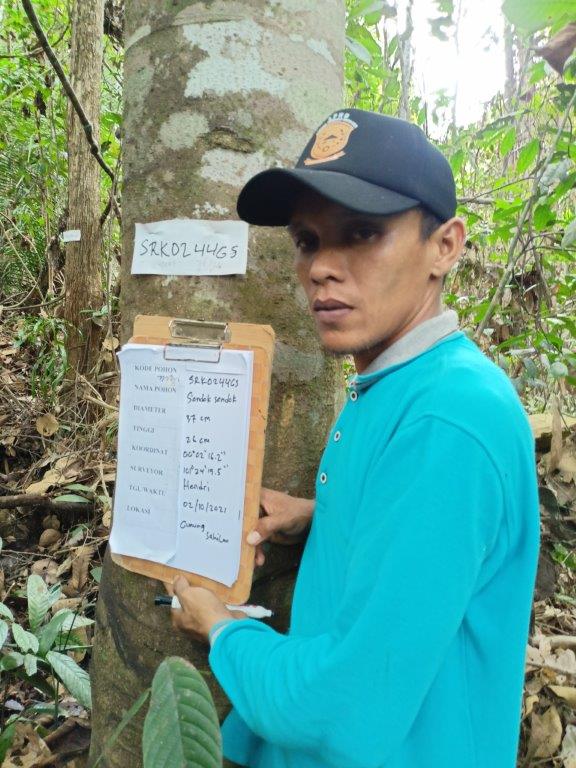 SRK0244GS
KODE POHON SRK0244GS
NAMA POHON Sendok sendok
DIAMETER 37 cm
TINGGI 26 cm
KOORDINAT 00°02'16.2"
101°24'19.5"
SURVEYOR Hendri
TGL/WAKTU 02/10/2021
LOKASI Gunung
Sahilan